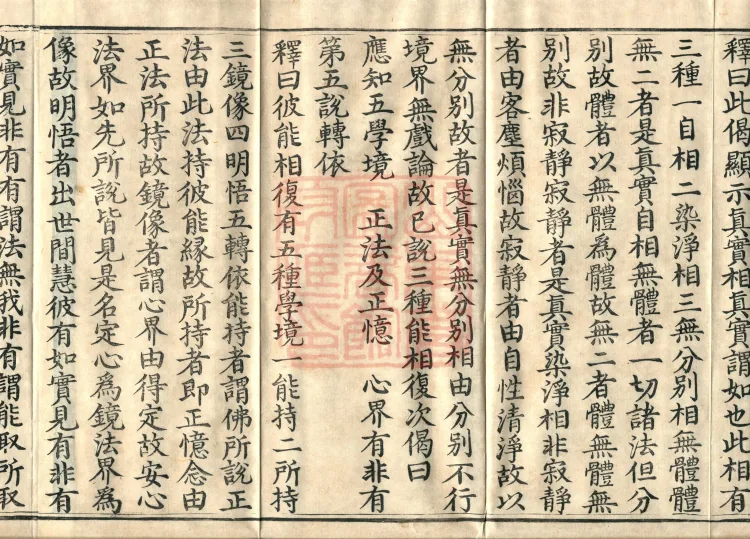 釋曰此偈顯示真實相真實謂如也此相有
三種一自相二染淨相三無分別相無體體
無二者是真實自相無體者一切諸法但分
別故體者以無體為體故無二者體無體無
別故非寂靜寂靜者是真實染淨相非寂靜
者由客塵煩惱故寂靜者由自性清淨故以
無分別故者是真實無分別相由分別不行
境界無戲論故已說三種能相復次偈曰
應知五學境 正法及正憶 心界有非有
第五說轉依
釋曰彼能相復有五種學境一能持二所持
三鏡像四明悟五轉依能持者謂佛所說正
法由此法持彼能緣故所持者即正憶念由
正法所持故鏡像者謂心界由得定故安心
法界如先所說皆見是名定心為鏡法界為
像故明悟者出世間慧彼有如實見有非有
如實見非有有謂法無我非有謂能取所取